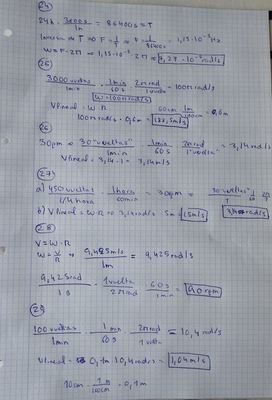 24
24h · 3600s / 1h = 86400s = T
Inversa de T ⇒ F = 1/T ⇒ F = 1/86400 = 1,15·10⁻⁵Hz
W = F·2π = 1,15·10⁻⁵·2π = 7,27·10⁻⁵rad/s
25
3000 vueltas / 1min · 1min / 60s · 2π rad / 1 vuelta = 100π rad/s
W = 100π rad/s
V lineal = W·R 60cm · 1m / 100cm = 0,6m
100π rad/s · 0,6m = 188,5m/s
26
30rpm ⇒ 30 "vueltas" / 1min · 1min / 60s · 2π rad / 1 "vuelta" = 3,14 rad/s
V lineal = 3,14·1 = 3,14m/s
27
a) 450 vueltas / 1/4 hora · 1 hora / 60min = 30rpm ⇒ 30 "vueltas" / 1 · 1 / 60 · 2π
3,14 rad/s
b) V lineal = W·R ⇒ 3,14 rad/s · 5m = 15m/s
28
V = W·R
W = V/R ⇒ 9,425m/s / 1m = 9,425 rad/s
9,425 rad / 1s · 1 vuelta / 2π rad · 60s / 1min = 90rpm
29
100 vueltas / 1min · 1min / 60s · 2π rad / 1 vuelta = 10,4 rad/s
V lineal = 0,1m · 10,4 rad/s = 1,04m/s
10cm · 1m / 100cm = 0,1m